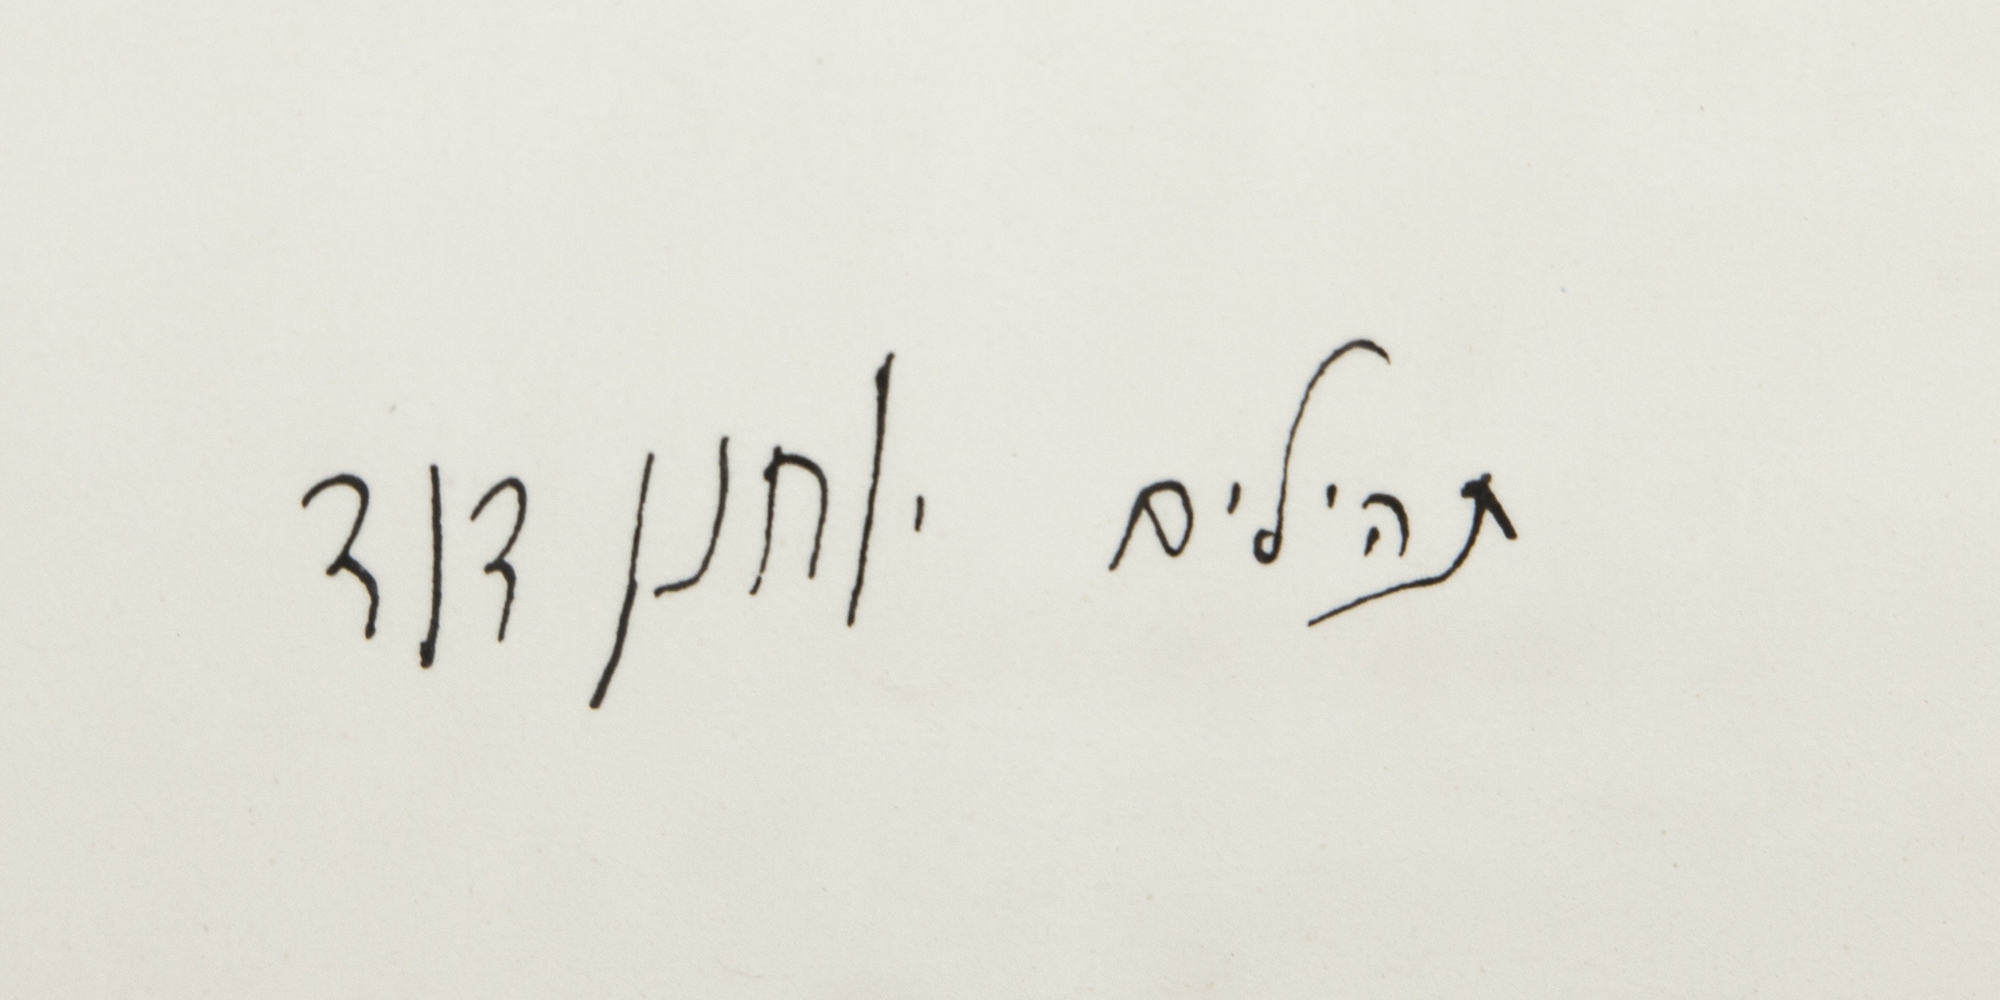 תהילים יוחנן דוד